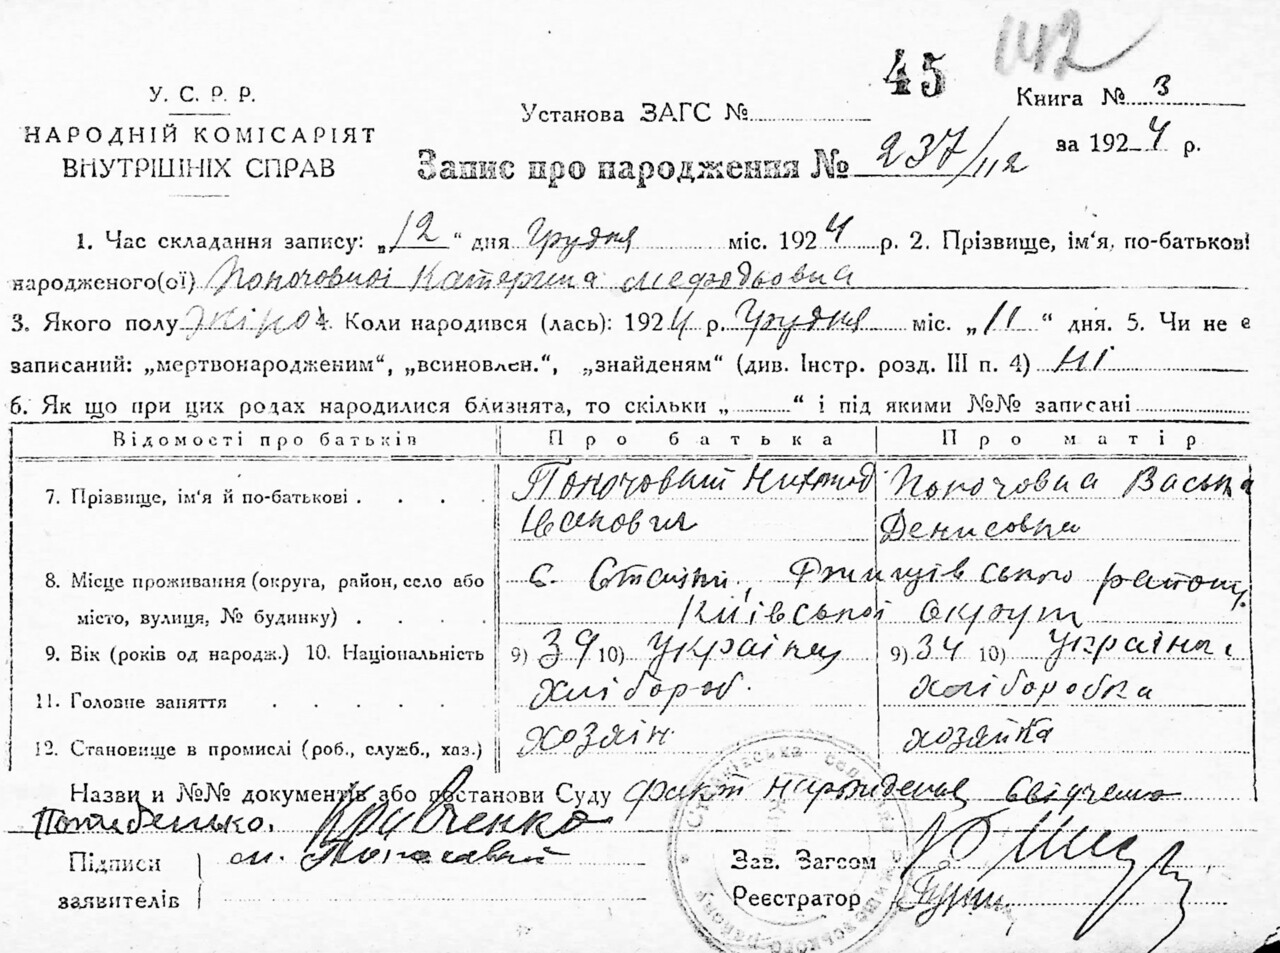 45 142
У. С. Р. Р.
НАРОДНІЙ КОМІСАРІЯТ
ВНУТРІШНІХ СПРАВ
Установа ЗАГС №
Книга № 3
за 1924 р.
Запис про народження № 237/112
1. Час складання запису: „12“ дня Грудня міс. 1924 р. 2. Прізвище, ім'я, по-батькові
народженого(ої) Поночовної Катерина Мефодьовна
3. Якого полу жіно 4. Коли народився (лась): 1924 р. Грудня міс. „11“ дня. 5. Чи не є
записаний: „мертвонародженим“, „всиновлен.“, „знайденям“ (див. Інстр. розд. III п. 4) ні
6. Як що при цих родах народилися близнята, то скільки „ “ і під якими №№ записані
Відомості про батьків Про батька Про матір
7. Прізвище, ім'я й по-батькові Поночовний Поночовна Васька
Іванович Денисовна
8. Місце проживання (округа, район, село або с. Стайки, Ржищівського району
місто, вулиця, № будинку) Київської округи
9. Вік (років од народж.) 10. Національність 9) 39 10) Українець 9) 34 10) Українка
11. Головне заняття хлібороб. хліборобка
12. Становище в промислі (роб., служб., хаз.) хозяін хозяйка
Назви и №№ документів або постанови Суду факт народження свідчать
Потебенько. Кравченко
Підписи
заявителів
Зав. Загсом
Реєстратор